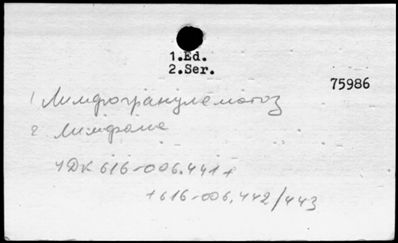 1.Ed.
2.Ser.
75986
1) Лимфогранулематоз
2 Лимфома
УДК 616-006.441+
+616-006.442/443